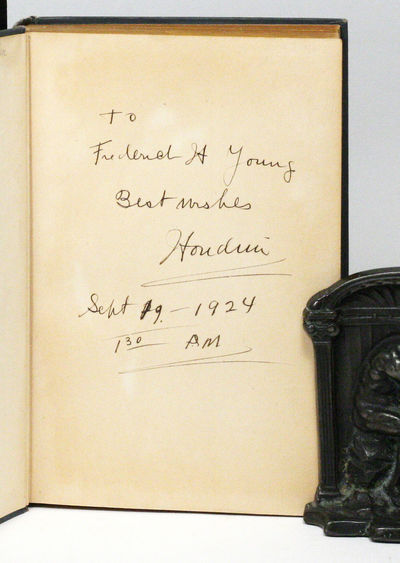 To
Frederick H Young
Best wishes
Houdini
Sept 19 - 1924
1 30 AM